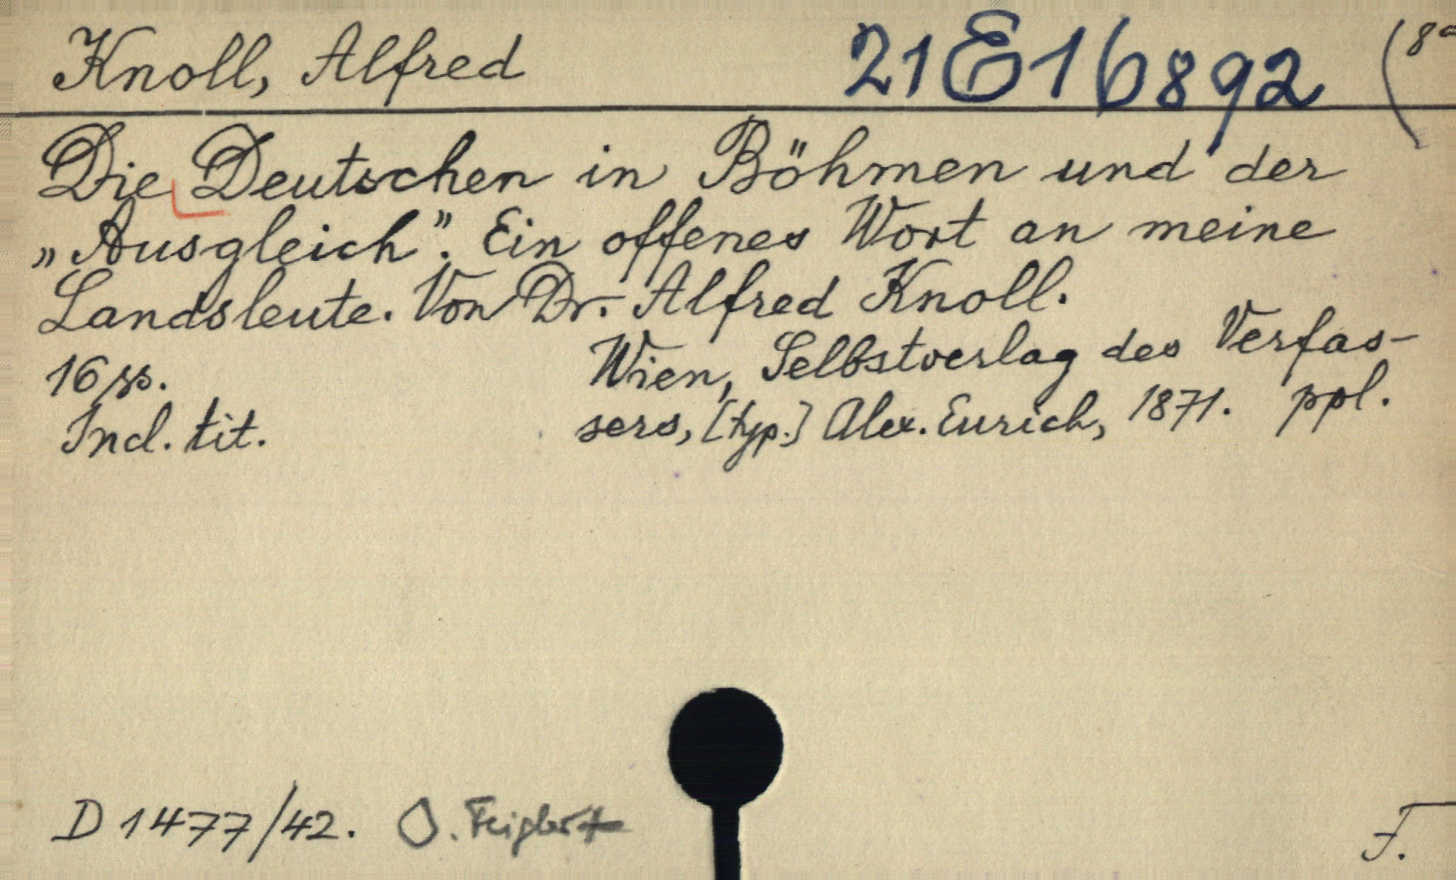 Knoll, Alfred 21 E 16892 (8°
Die Deutschen in Böhmen und der
„Ausgleich”. Ein offenes Wort an meine
Landsleute. Von Dr. Alfred Knoll.
16 ss. Wien, Selbstverlag des Verfas-
Incl. tit. sers, [typ.] Alex. Eurich, 1871. ppl.
D 1477/42. O.
F.